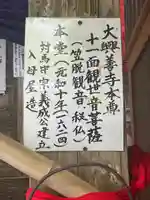 大興善寺本尊
十一面観世音菩薩
(笠脱観音、秘仏)
本堂(元和十年一六二四
対馬守宗義成公建立
入母屋造